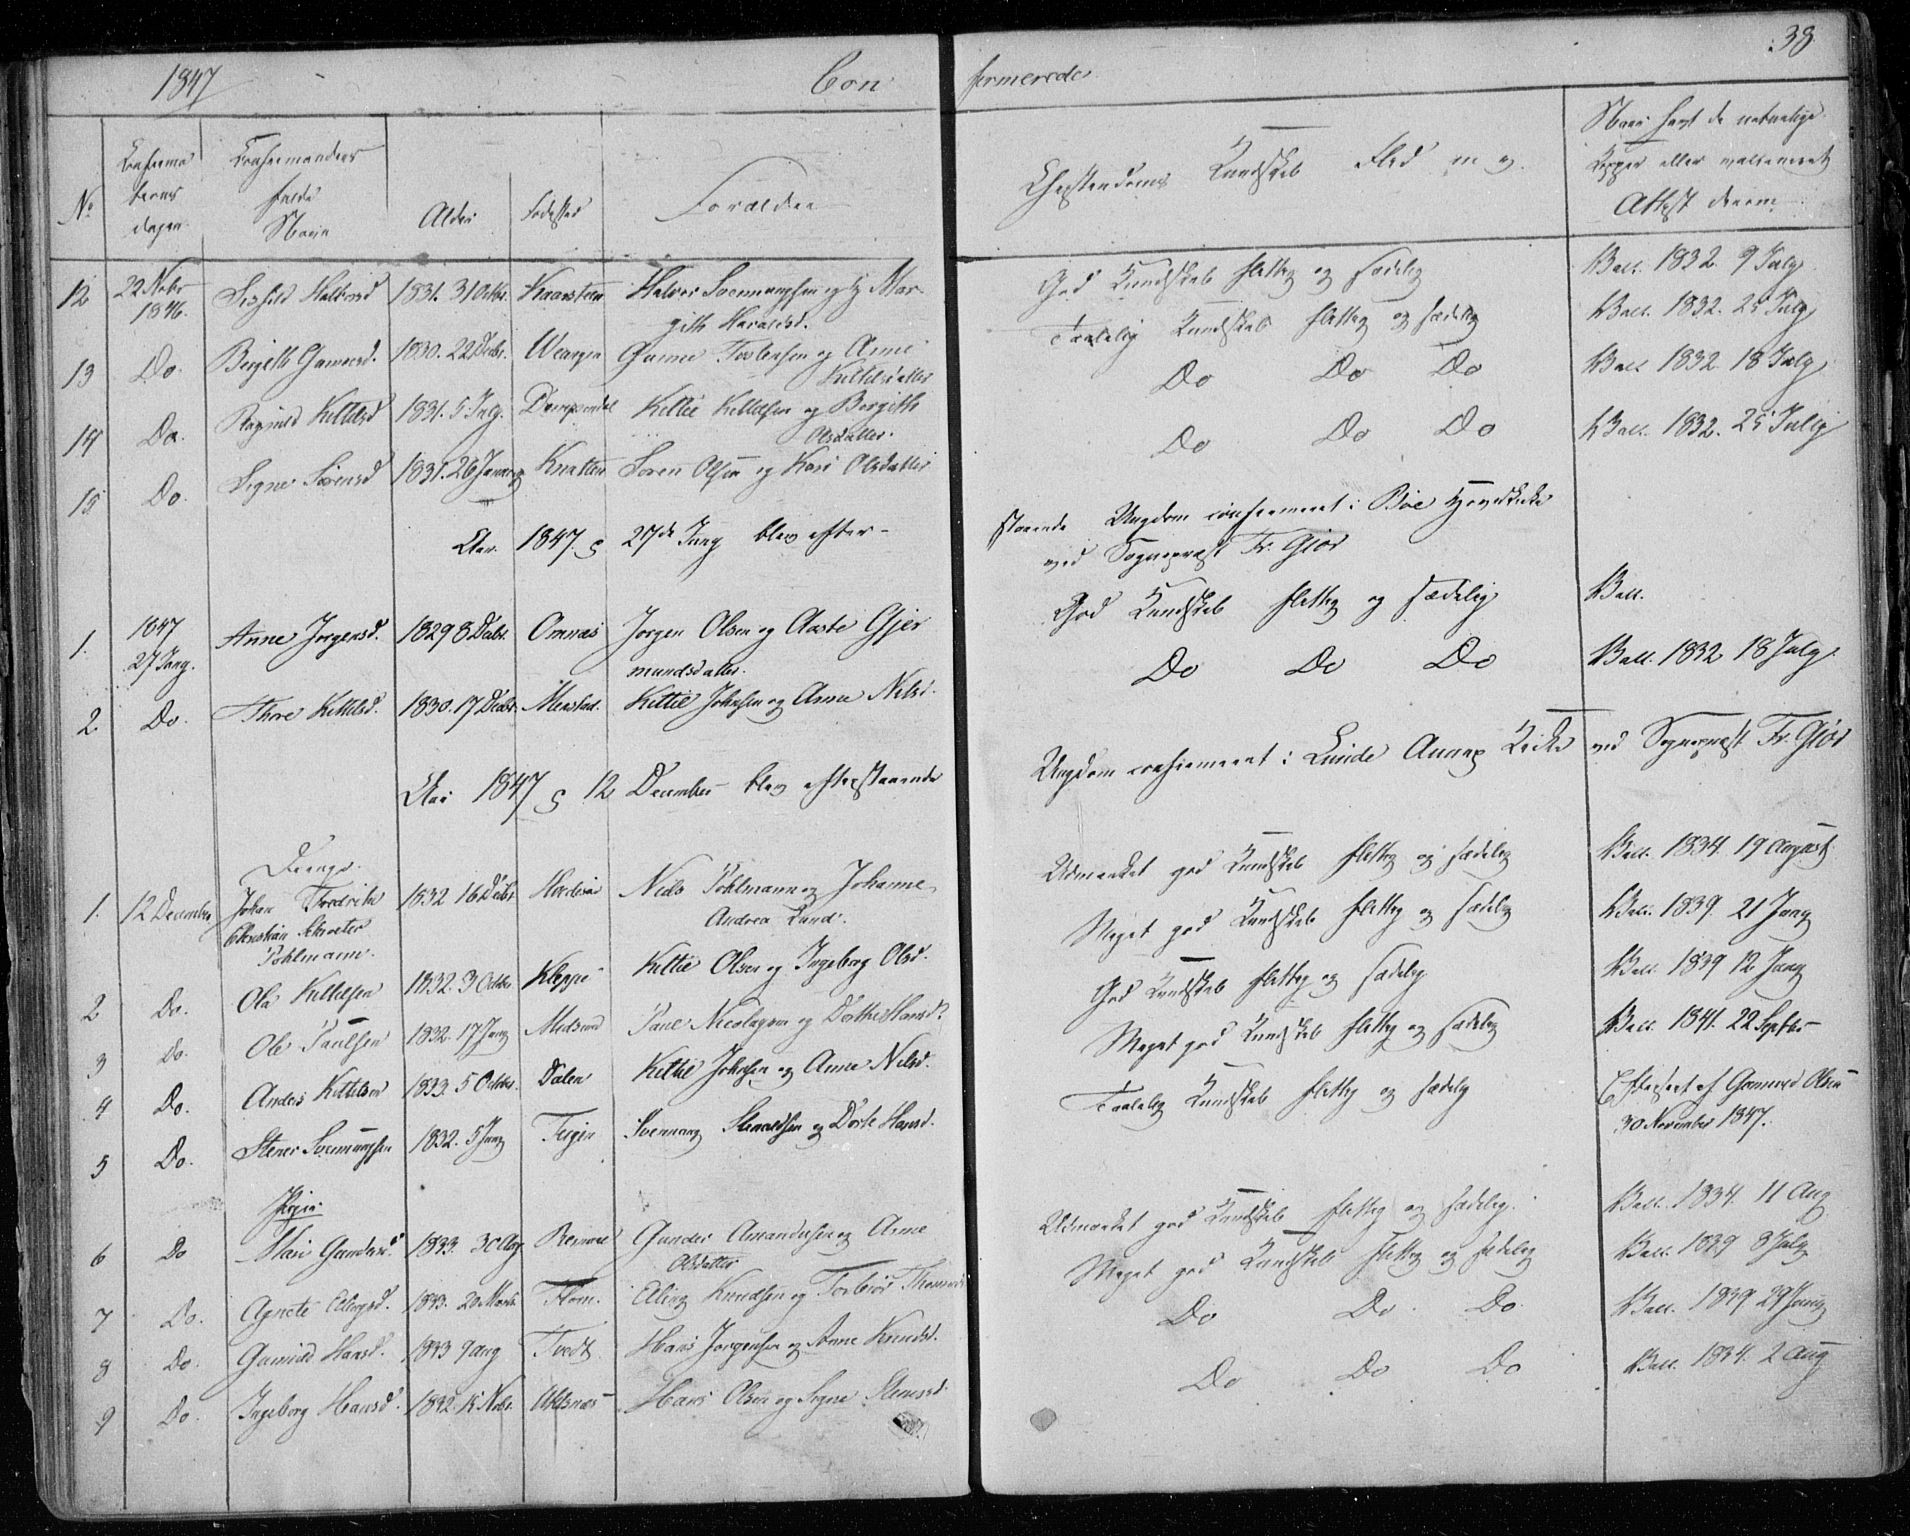 1847 Con firmerede 38
No
Confirma
tions
dagen
Confirmandens
fulde
Navn
Alder
Fødested
Forældre
Christendoms Kundskab Flid m v.
Naar havt de naturlige
Kopper eller vaccineret
Attest derom
12 22 Nobr 1846. Halvorsd 1831. 31 Octbr. Kaasteen Halvor Svennungsen og Mar-
githe Haraldsd. God Kundskab flittig og sædelig Vacc. 1832. 9 July
13 Do. Bergithe Gunnersd. 1830. 22 Debr. Gunner og Anne
Kittelsdatter Taalelig Kundskab flittig og sædelig Vacc. 1832. 25 July
14 Do. Ragnild Kittelsd 1831. 5 July. Kittil Kittelsen og Bergithe
Olsdatter. Do Do Do Vacc. 1832. 18 July
15 Do. Signe Sørensd 1831. 26 January Knatten Søren Olsen og Kari Olsdatter Do Do Do Vacc. 1832. 25 July
Aar 1847 27de Juny blev efter-
staaende Ungdom confirmeret i Bøe Hovedkirke
ved Sognepræst Fr. Giør
1. 1847 27 Juny. Anne Jørgensd. 1829 8 Debr. Omnæs Jørgen Olsen og Aaste Gjer
mundsdatter. God Kundskab flittig og sædelig Vacc.
2. Do. Thore Kittilsd. 1830. 17 Debr. Menstad. Kittil Johnsen og Anne Nilsd. Do Do Do Vacc. 1832 18 July.
Aar 1847 12 December blev efterstaaende
Ungdom confirmeret i Lunde Annex Kirke ved Sognepræst Fr. Giør
Drenge.
1. 12 December Johan Fredrik
Christian Schrøter
Pohlmann. 1832 16 Debr Nils Pohlmann og Johanne
Andrea Lund. Udmærket god Kundskab flittig og sædelig Vacc. 1834. 19 August
2 Do. Ole Kittilsen 1832. 3 Octbr Kleppe Kittil Olsen og Ingeborg Olsd. Meget god Kundskab flittig og sædelig Vacc. 1839. 21 Juny
3 Do. Ole Paulsen 1832. 17 Juny Paul Nicolaysen og Dorthe Hansd. God Kundskab flittig og sædelig Vacc. 1839 12 Juny
4 Do. Anders Kittilsen 1833. 5 Octbr. Dalen Kittil Johnsen og Anne Nilsd. Meget god Kundskab flittig og sædelig Vacc. 1841. 22 Septbr
5 Do. Stener Svennungsen 1832. 5 Juny Svennung Stenersen og Dorte Hansd. Taalelig Kundskab flittig og sædelig Efterseet af Gunnuld Olsen
30 November 1847.
Piger.
6 Do Mari Gundersd. 1833. 30 Aug Gunder Amundsen og Anne
Olsdatter Udmærket god Kundskab flittig og sædelig. Vacc. 1834. 11 Aug
7 Do. Agnete Ellingsd. 1833. 20 Marts Flom. Elling Knudsen og Torbiør Meget god Kundskab flittig og sædelig Vacc. 1839 8 July
8 Do. Gunild Hansd. 1833 9 Aug Tvedt Hans Jørgensen og Anne Knudsd. Do Do. Do. Vacc. 1839 29 Juny
9 Do. Ingeborg Hansd. 1832. 15 Nobr. Hans Olsen og Signe Stenersd. Do Do Do Vacc. 1834. 2 Aug